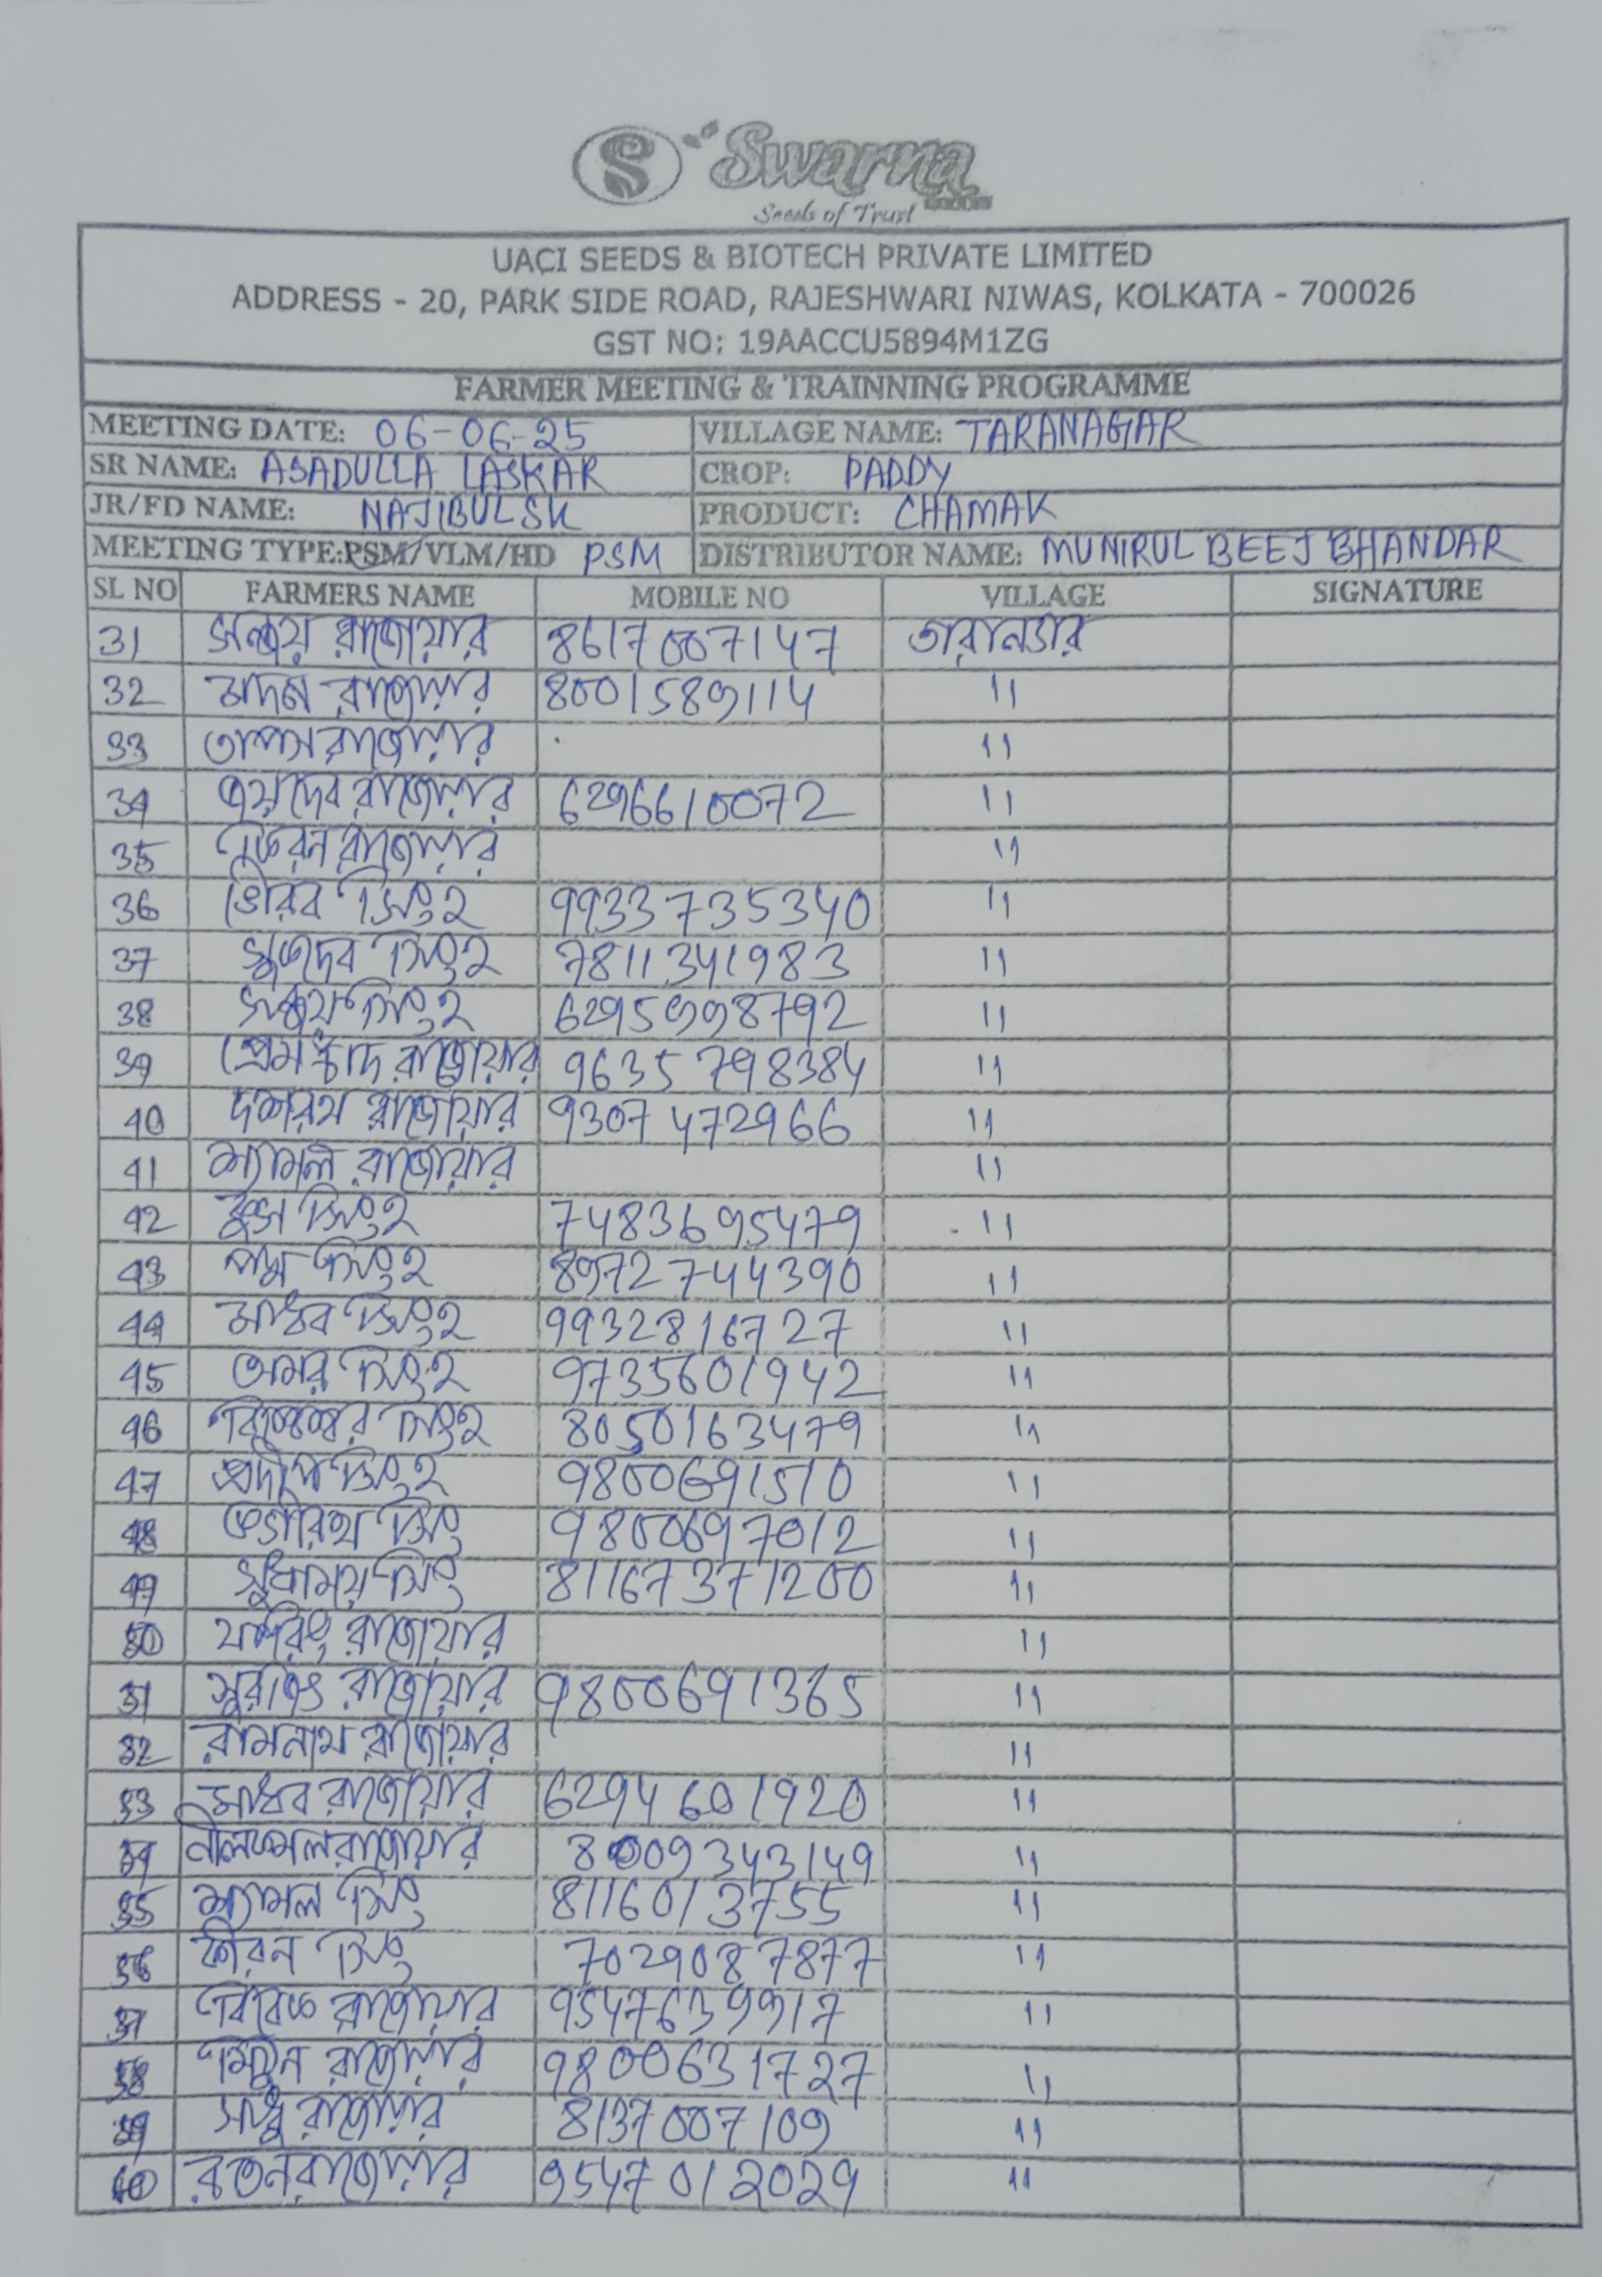 Swarna
Seeds of Trust
UACI SEEDS & BIOTECH PRIVATE LIMITED
ADDRESS - 20, PARK SIDE ROAD, RAJESHWARI NIWAS, KOLKATA - 700026
GST NO: 19AACCU5894M1ZG
FARMER MEETING & TRAINNING PROGRAMME
MEETING DATE: 06-06-25 VILLAGE NAME: TARANAGAR
SR NAME: ASADULLA LASKAR CROP: PADDY
JR/FD NAME: NAJIBUL SK PRODUCT: CHAMAK
MEETING TYPE:PSM/VLM/HD PSM DISTRIBUTOR NAME: MUNIRUL BEEJ BHANDAR
SL NO FARMERS NAME MOBILE NO VILLAGE SIGNATURE
31 সঞ্জয় রাজোয়ার 8617007147
32 মদন রাজোয়ার 8001589114 11
33 তাপস রাজোয়ার 11
34 জয়দেব রাজোয়ার 6296610072 11
35 রাজোয়ার 11
36 ভৈরব সিংহ 9933735340 11
37 সুখদেব সিংহ 7811341983 11
38 সঞ্জয় সিংহ 6295998792 11
39 প্রেমচাঁদ রাজোয়ার 9635798384 11
40 দশরথ রাজোয়ার 9307472966 11
41 শ্যামল রাজোয়ার 11
42 সিংহ 7483695479 11
43 পদ্ম সিংহ 8972744390 11
44 মাধব সিংহ 9932816727 11
45 অমর সিংহ 9735601942 11
46 সিংহ 8050163479 11
47 প্রদীপ সিংহ 9800691510 11
48 ভগীরথ সিং 9800697012 11
49 সুধাময় সিং 81167371200 11
50 রাজোয়ার 11
51 সুরজিৎ রাজোয়ার 9800691365 11
52 রামনাথ রাজোয়ার 11
53 মাধব রাজোয়ার 6294601920 11
54 রাজোয়ার 8009343149 11
55 শ্যামল সিং 8116013755 11
56 সিং 7029087877 11
57 বিবেক রাজোয়ার 9547639917 11
58 মিঠুন রাজোয়ার 9800631727 11
59 রাজোয়ার 8137007109 11
60 রতন রাজোয়ার 9547012029 11